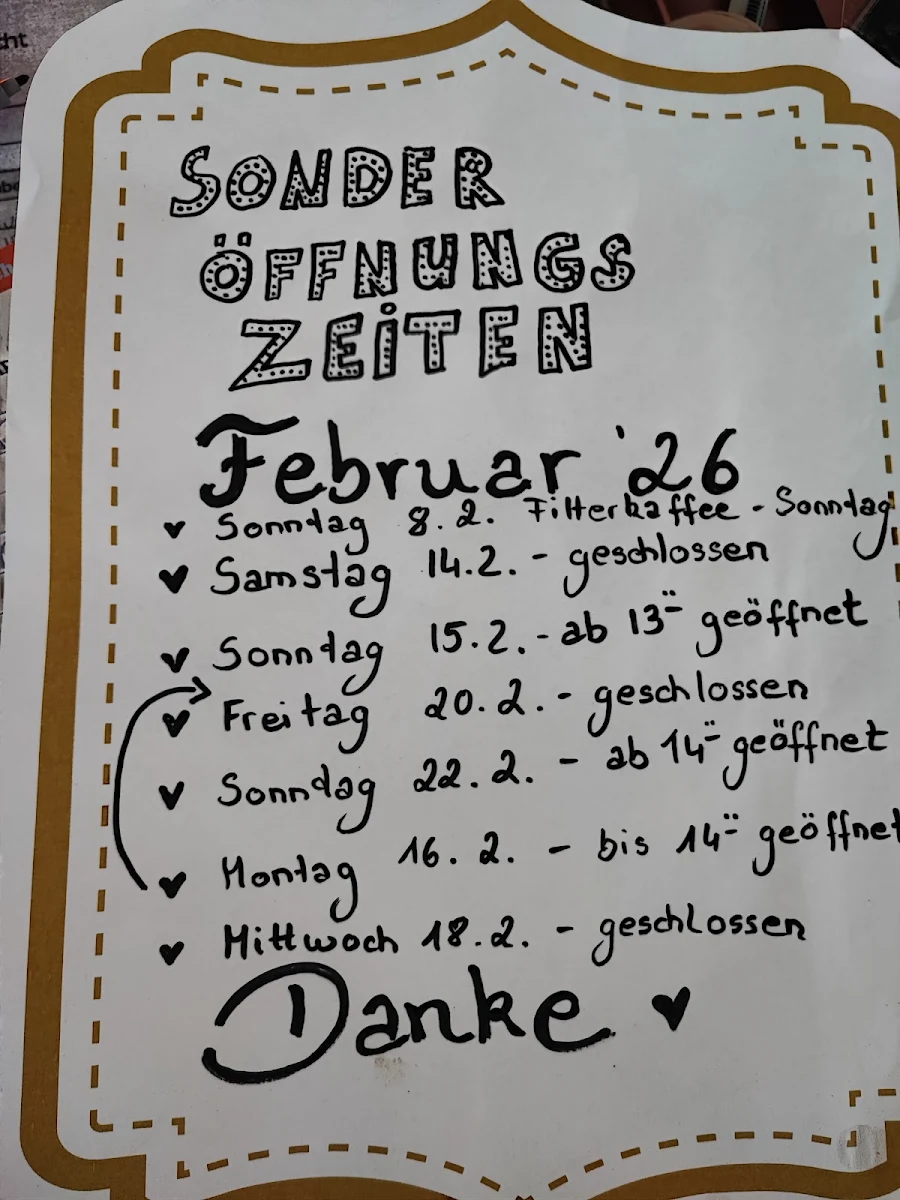 SONDER
ÖFFNUNGS
ZEiTEN
Februar '26
Sonntag 8.2. Filterkaffee - Sonntag
Samstag 14.2. - geschlossen
Sonntag 15.2. - ab 13⁰⁰ geöffnet
Freitag 20.2. - geschlossen
Sonntag 22.2. - ab 14⁰⁰ geöffnet
Montag 16.2. - bis 14⁰⁰ geöffnet
Mittwoch 18.2. - geschlossen
Danke